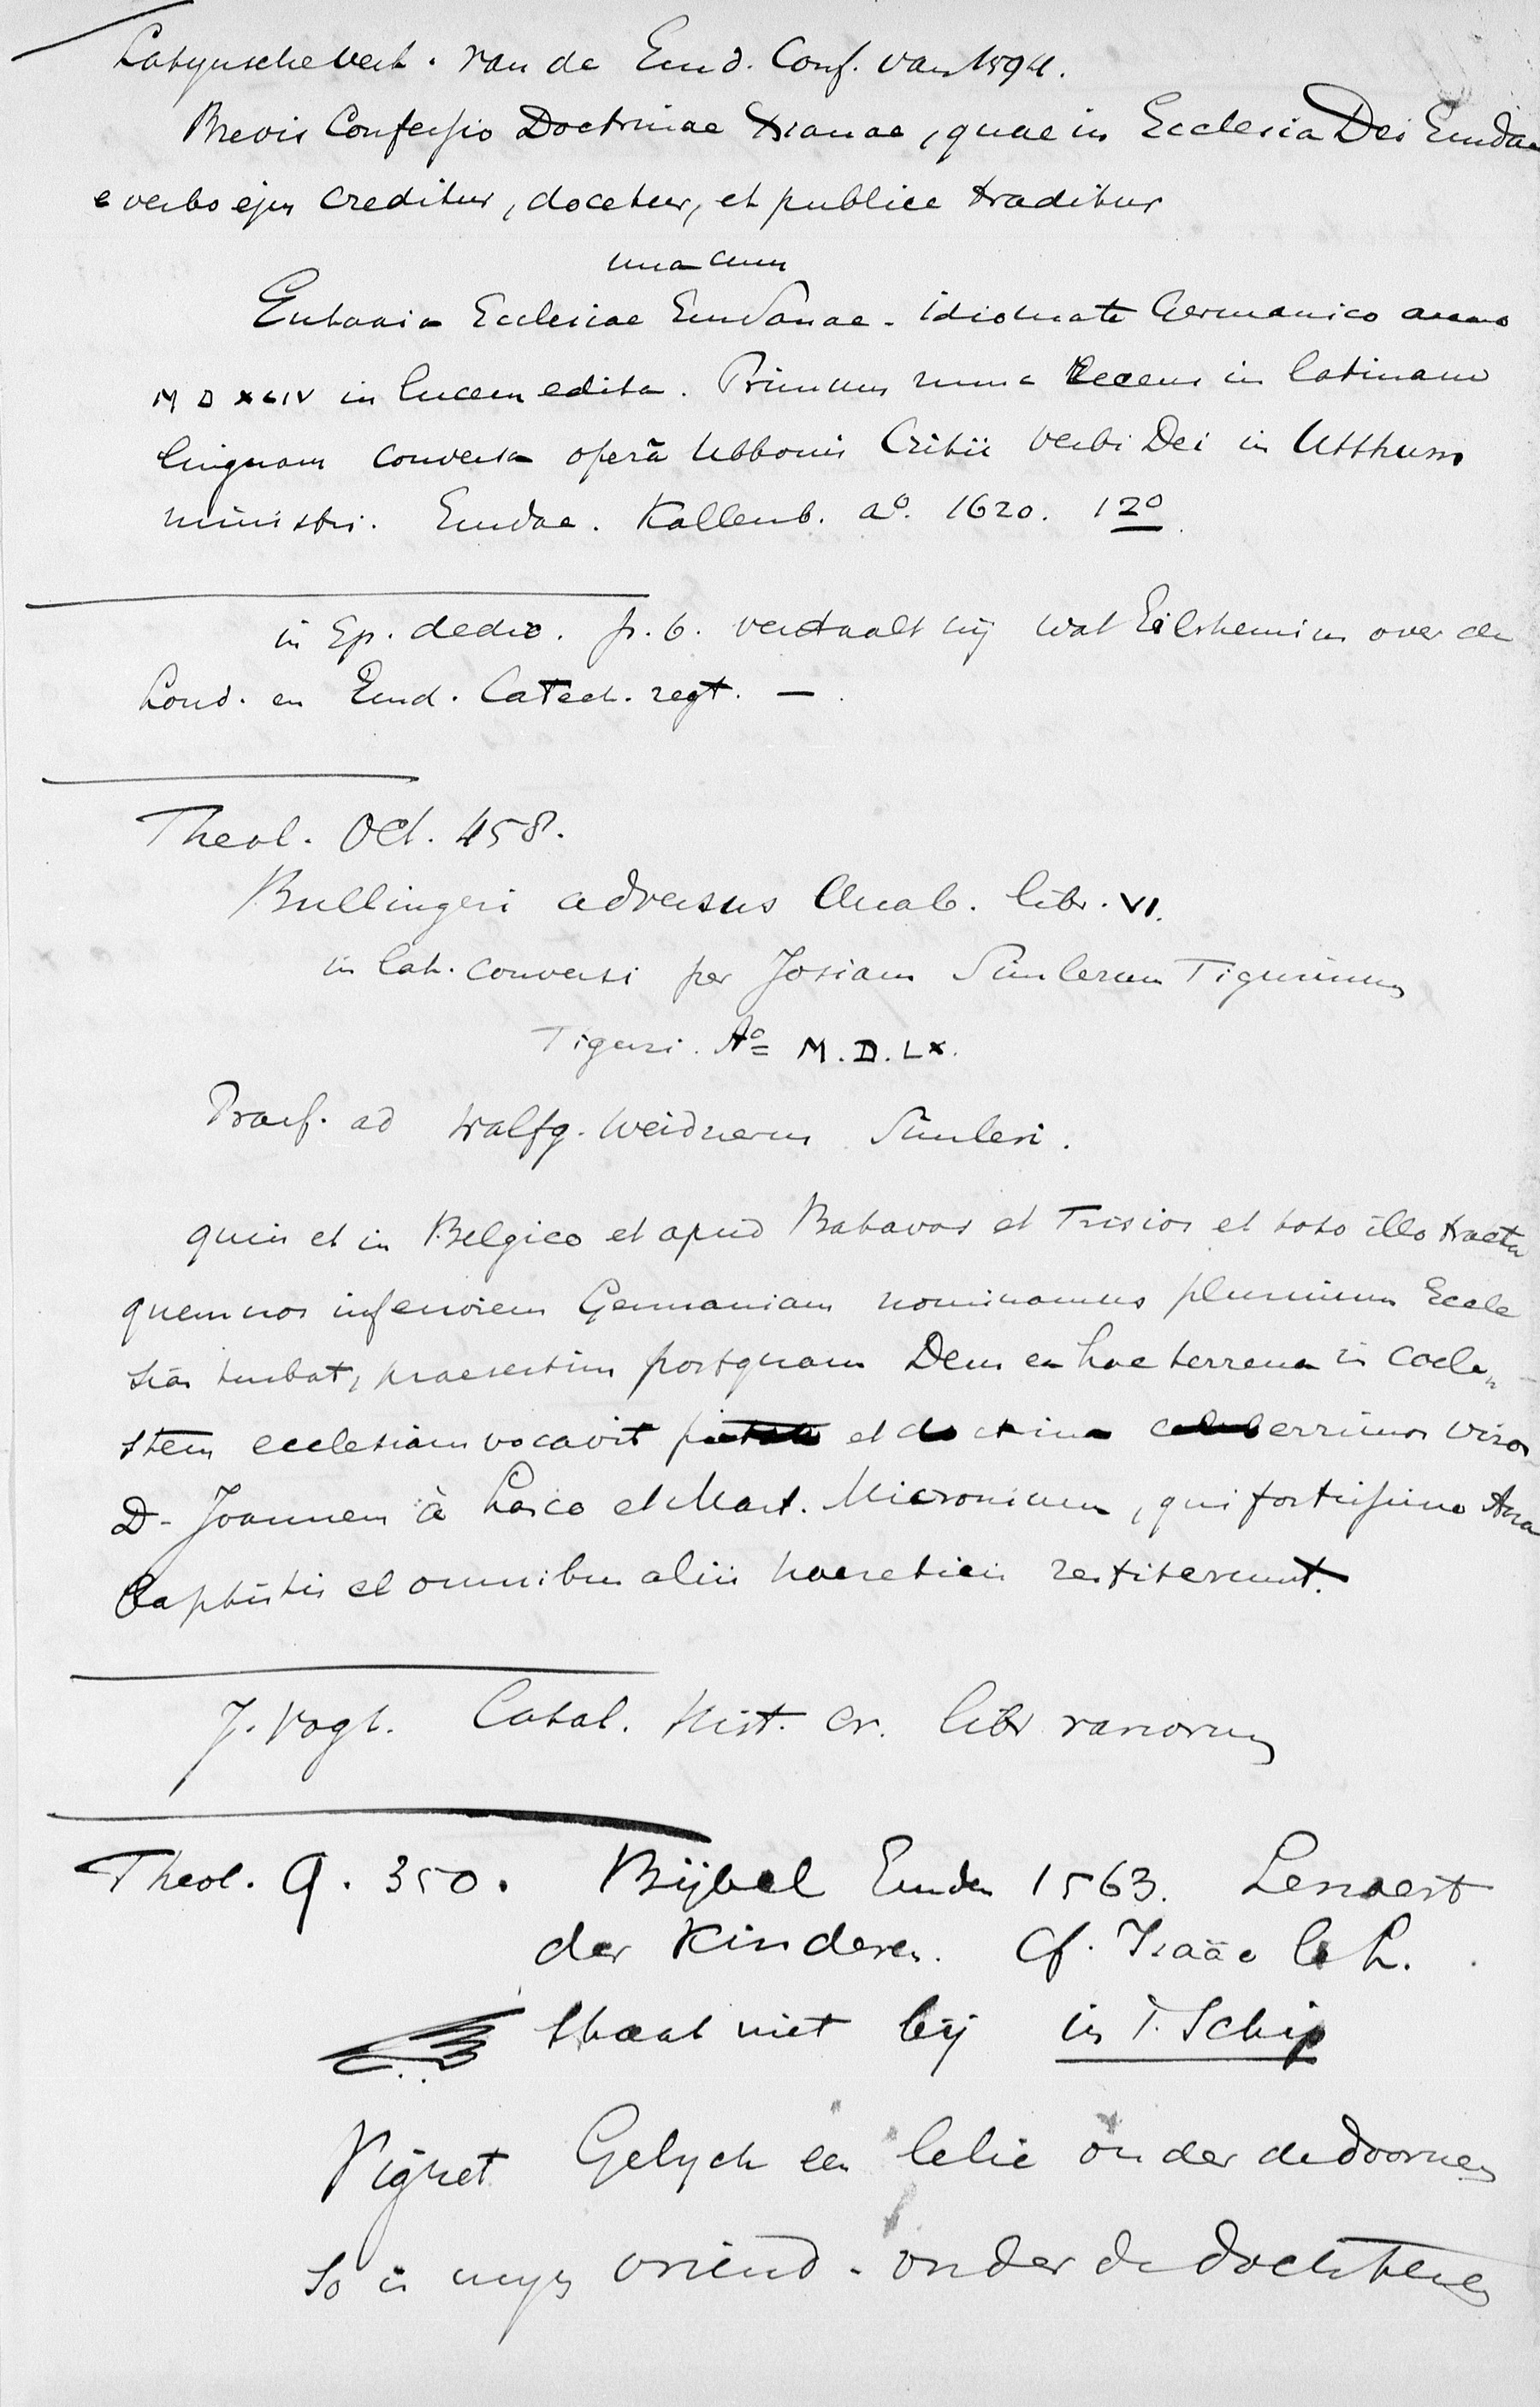 Latynsche vert. van de Emd. Conf. van 1594.
Brevis Confessio Doctrinae Xianae, quae in Ecclesia Dei Emdan
e verbo ejus creditur, docetur, et publice traditur
una cum
Eutaxia Ecclesiae Emdanae. idiomate Germanico anno
MDXCIV in lucem edita. Primum nunc recens in latinam
linguam conversa operâ Ubbonis Critii verbi Dei in Utthum
ministri. Emdae. Kallenb. ao. 1620. 12o.
in Ep. dedic. p. 6. verhaalt hij wat Eilshemius over den
Lond. en Emd. Catech. zegt. —.
Theol. Oct. 458.
Bullingeri adversus Anab. libr. VI.
in lat. conversi per Josiam Simlerum Tigurinum
Tiguri. Ao M.D.LX.
Praef. ad Wolfg. Weidnerum Simleri.
quin et in Belgico et apud Batavos et Frisios et toto illo tractu
quem nos inferiorem Germaniam nominamus plurimum Eccle
sias turbat, praesertim postquam Deus ex hac terrena in coele„
stem ecclesiam vocavit pietate et doctrina celeberrimos viros
D. Joannem à Lasco et Mart. Micronium, qui fortissime Ana
baptistis et omnibus aliis haereticis restiterunt.
J. Vogt. Catal. Hist. cr. libr rariorum
Theol. Q. 350. Bijbel Emden 1563. Lenaert
der Kinderen. Cf. Isaäc le L.
staat niet bij in T. Schip
Vignet Gelych een lelie onder de doornen
So is myn vriend. onder de dochteren